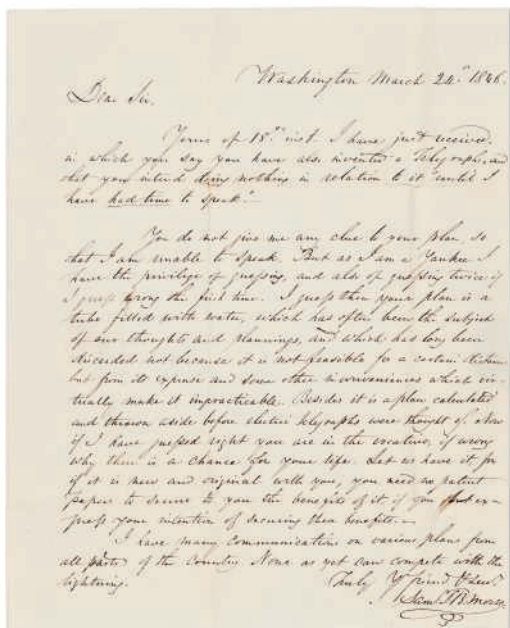 Washington March 24th 1846.
Dear Sir,
Yours of 18th inst. I have just received,
in which you say you have also invented a Telegraph, and
that you intend doing nothing in relation to it "until I
have had time to speak."
You do not give me any clue to your plan, so
that I am unable to speak. But as I am a Yankee I
have the privilege of guessing, and also of guessing twice if
I guess wrong the first time. I guess then your plan is a
tube filled with water, which has often been the subject
of our thoughts and plannings, and which has long been
discarded not because it is not feasible for a certain distance
but from its expense and some other inconveniences which vir-
tually make it impracticable. Besides it is a plan calculated
and thrown aside before electric telegraphs were thought of. Now
if I have guessed right you are in the if wrong
why there is a chance for your life. Let us have it, for
if it is new and original with you, you need no patent
papers to secure to you the benefits of it if you but ex-
press your intention of securing these benefits.
I have many communications on various plans from
all parts of the country. None as yet can compete with the
lightning.
Truly Yr friend & servt.
Saml. F. B. Morse.